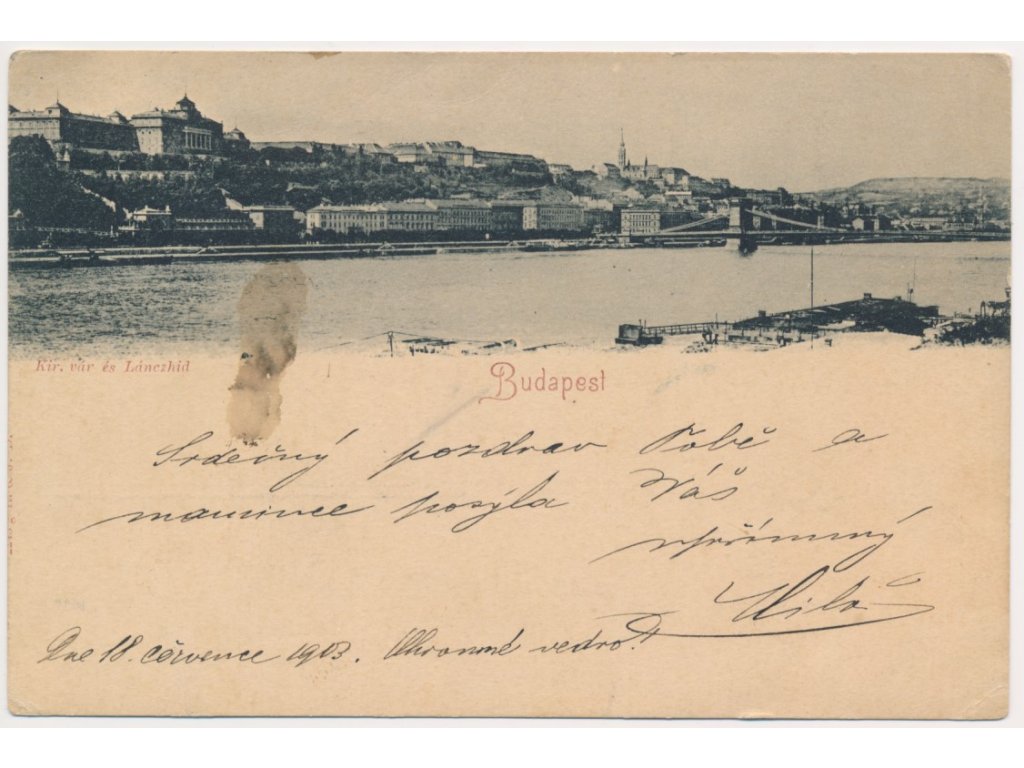 Kir. vár és Lánczhid
Budapest
Srdečný pozdrav Tobě a
mamince posýla Váš
upřímný
Dne 18. července 1903. Ohromné vedro!